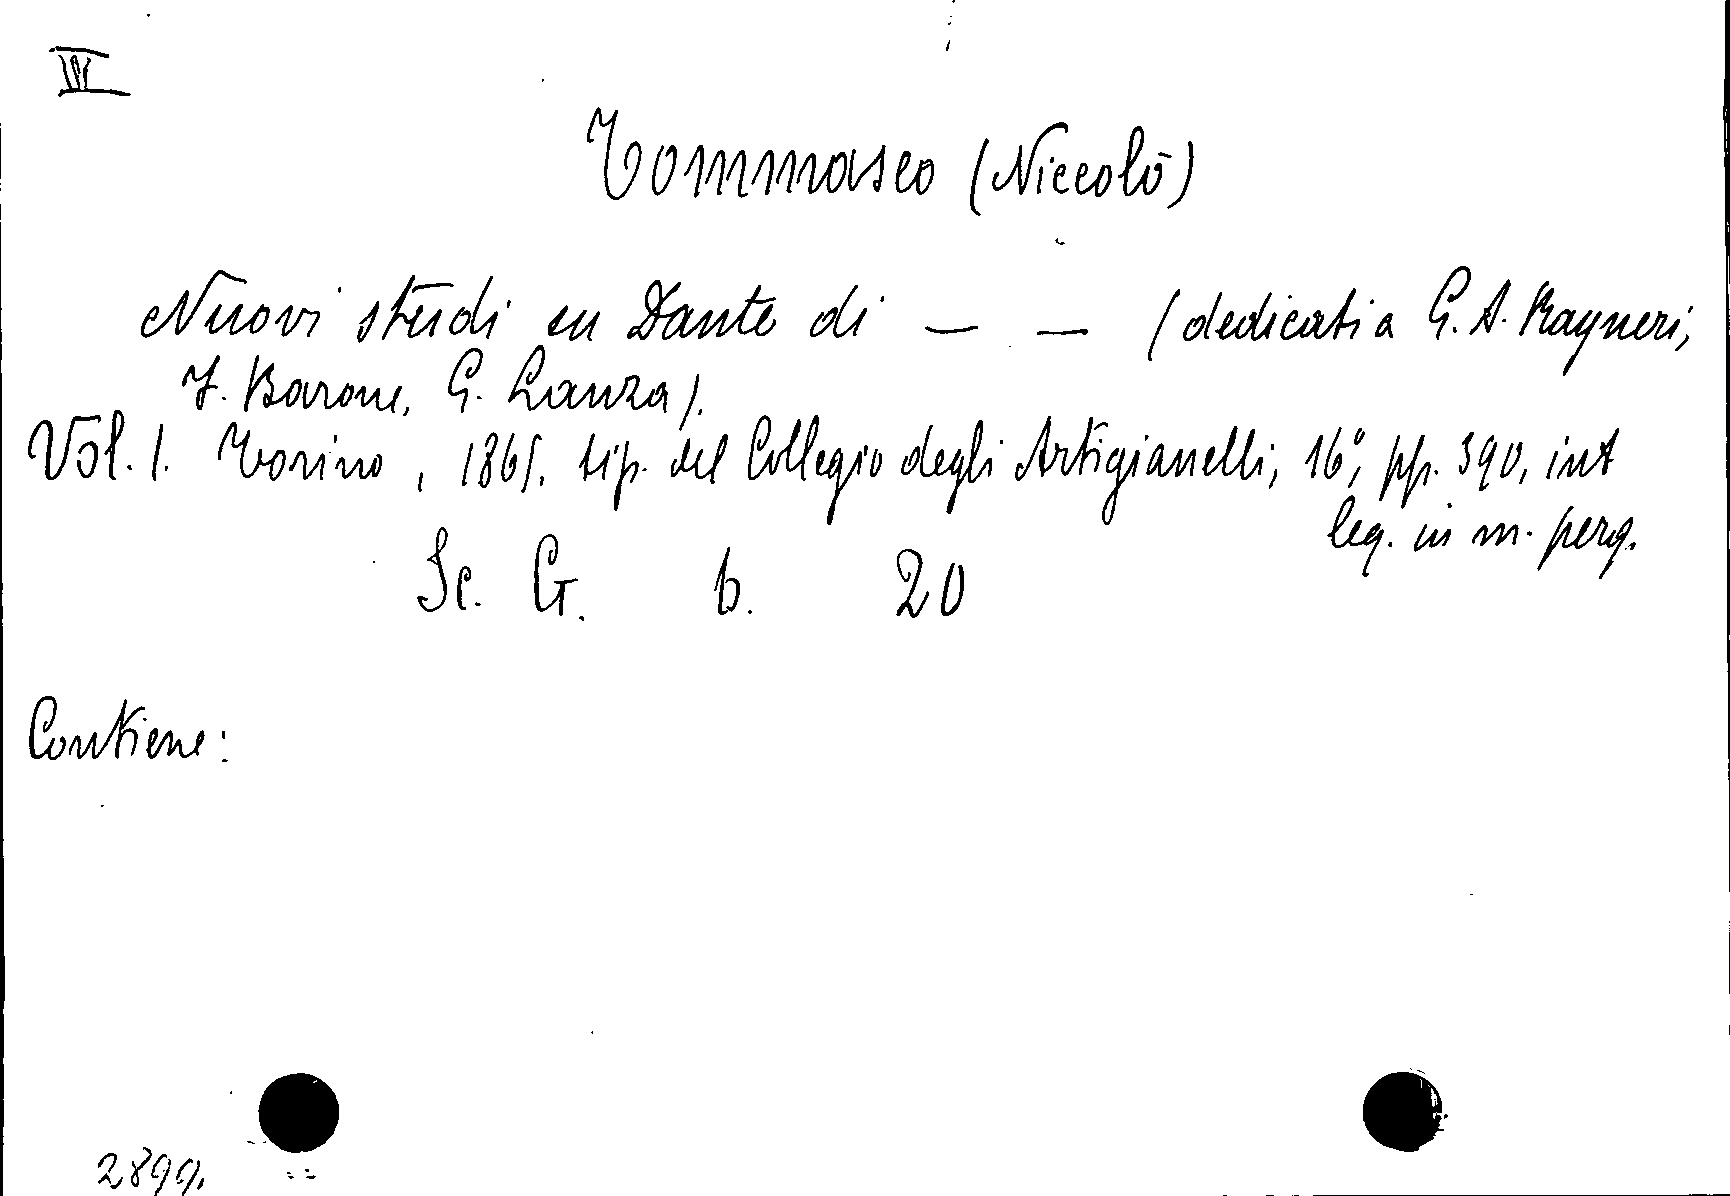 IV
Tommaseo (Niccolò)
Nuovi studi su Dante di — — (dedicati a G. A. Rayneri,
F. Barone, G. Lanza).
Vol. 1. Torino, 1865. tip. del Collegio degli Artigianelli, 16°, pp. 390, int
leg. in m. perg.
Sc. G. b. 20
Contiene:
2899.